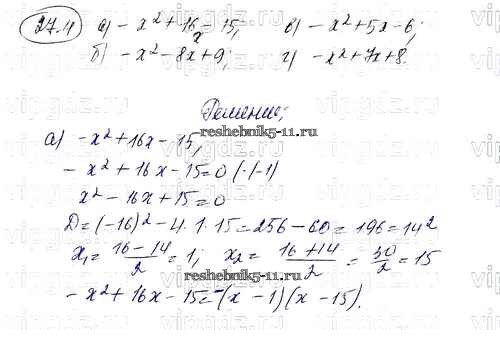 27.4 а) -x² + 16x - 15; в) -x² + 5x - 6;
б) -x² - 8x + 9; г) -x² + 7x + 8.
Решение;
reshebnik5-11.ru
а) -x² + 16x - 15,
-x² + 16x - 15 = 0 (·(-1)
x² - 16x + 15 = 0
D = (-16)² - 4·1·15 = 256 - 60 = 196 = 14²
x₁ = (16 - 14)/2 = 1; x₂ = (16 + 14)/2 = 30/2 = 15
reshebnik5-11.ru
-x² + 16x - 15 = -(x - 1)(x - 15).